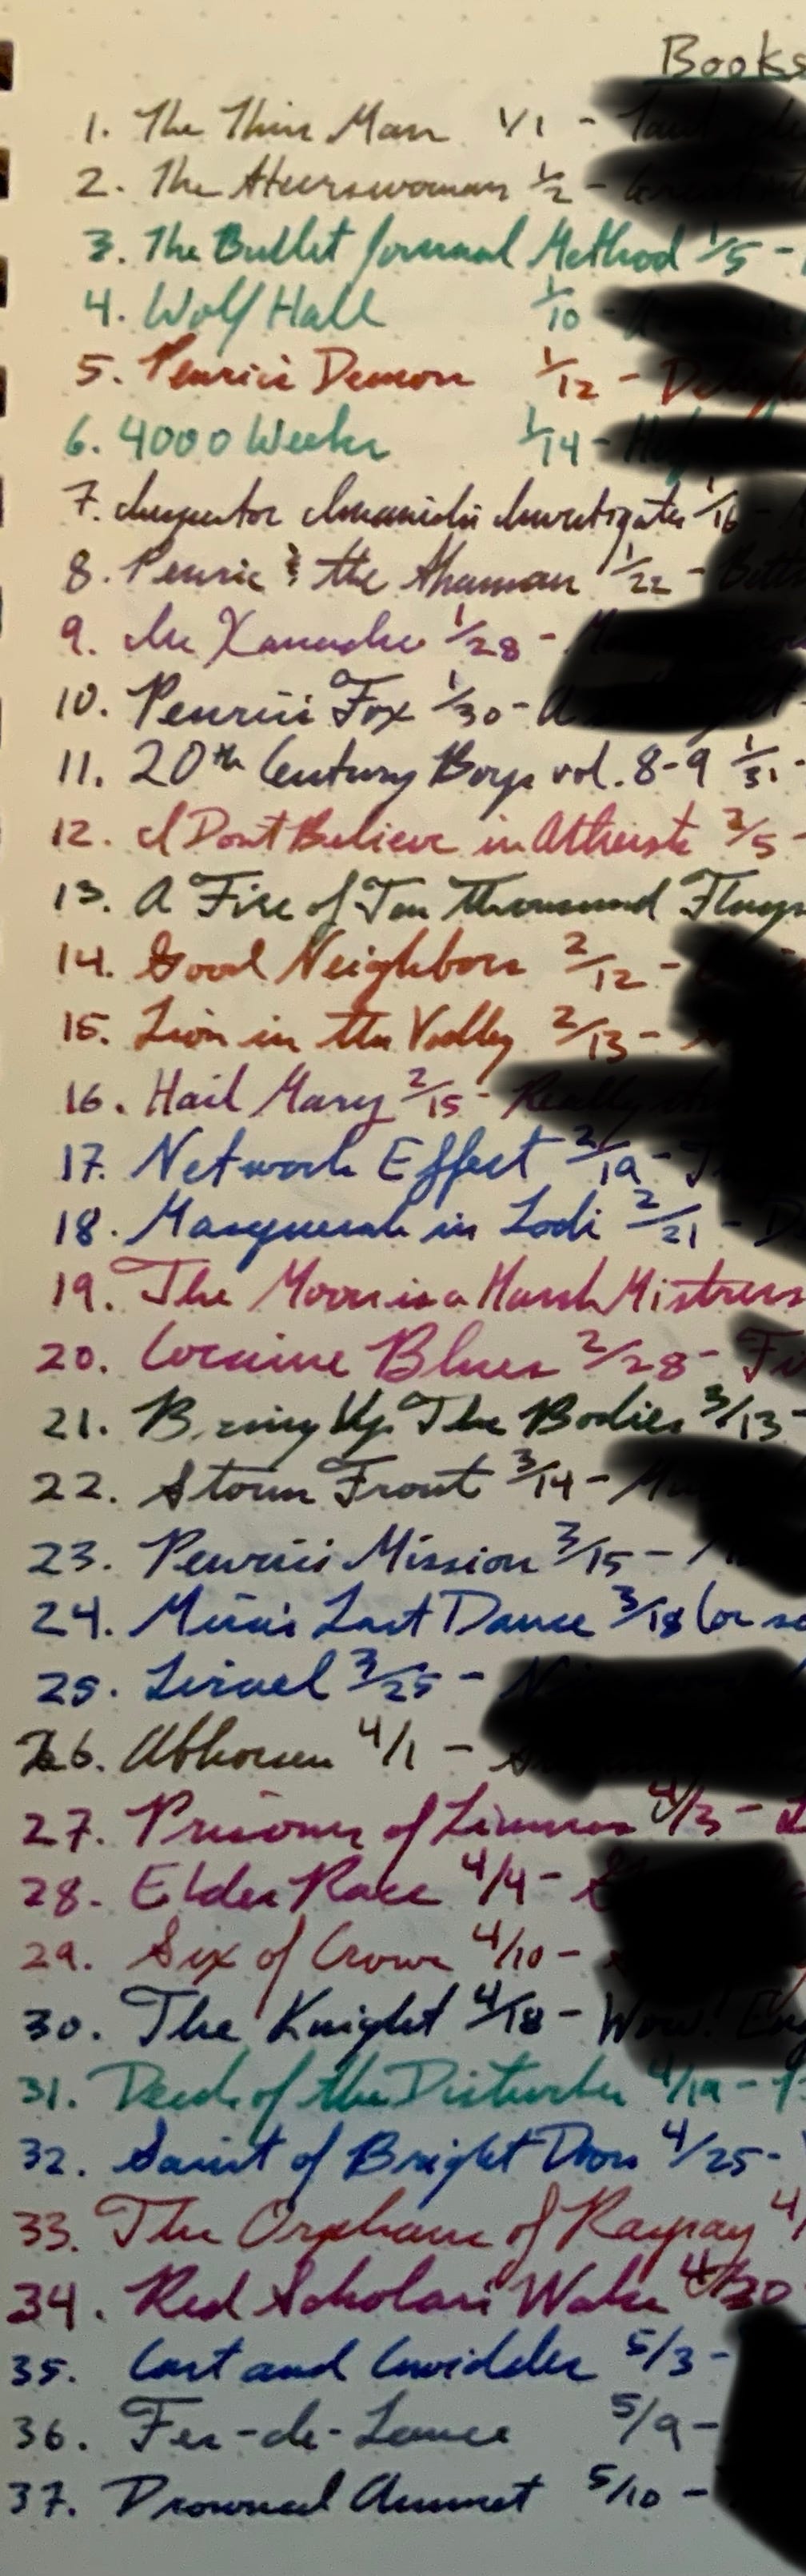 Books
1. The Thin Man 1/1 -
2. The Steerswoman 1/2 -
3. The Bullet Journal Method 1/5 -
4. Wolf Hall 1/10
5. Penric's Demon 1/12 -
6. 4000 Weeks 1/14 -
7. Inspector Imanishi Investigates 1/16 -
8. Penric & the Shaman 1/22 -
9. In Xanadu 1/28 -
10. Penric's Fox 1/30 - A
11. 20th Century Boys vol. 8-9 1/31 -
12. I Don't Believe in Atheists 2/5 -
13. A Fire of Ten Thousand
14. Good Neighbors 2/12 -
15. Lion in the Valley 2/13 -
16. Hail Mary 2/15 - Really
17. Network Effect 2/19 -
18. Masquerade in Lodi 2/21 -
19. The Moon is a Harsh Mistress
20. Cocaine Blues 2/28 -
21. Bring Up The Bodies 3/13 -
22. Storm Front 3/14 -
23. Penric's Mission 3/15 -
24. Mira's Last Dance 3/18 (or
25. Lirael 3/25 -
26. Abhorsen 4/1 -
27. Prisoner of Limnos 4/3 -
28. Elder Race 4/4 -
29. Six of Crows 4/10 -
30. The Knight 4/18 - Wow!
31. Deeds of the Disturber 4/19 -
32. Saint of Bright Doors 4/25 -
33. The Orphans of Raspay 4/
34. Red Scholar's Wake 4/30
35. Cart and Cwidder 5/3 -
36. Fer-de-Lance 5/9 -
37. Drowned Ammet 5/10 -